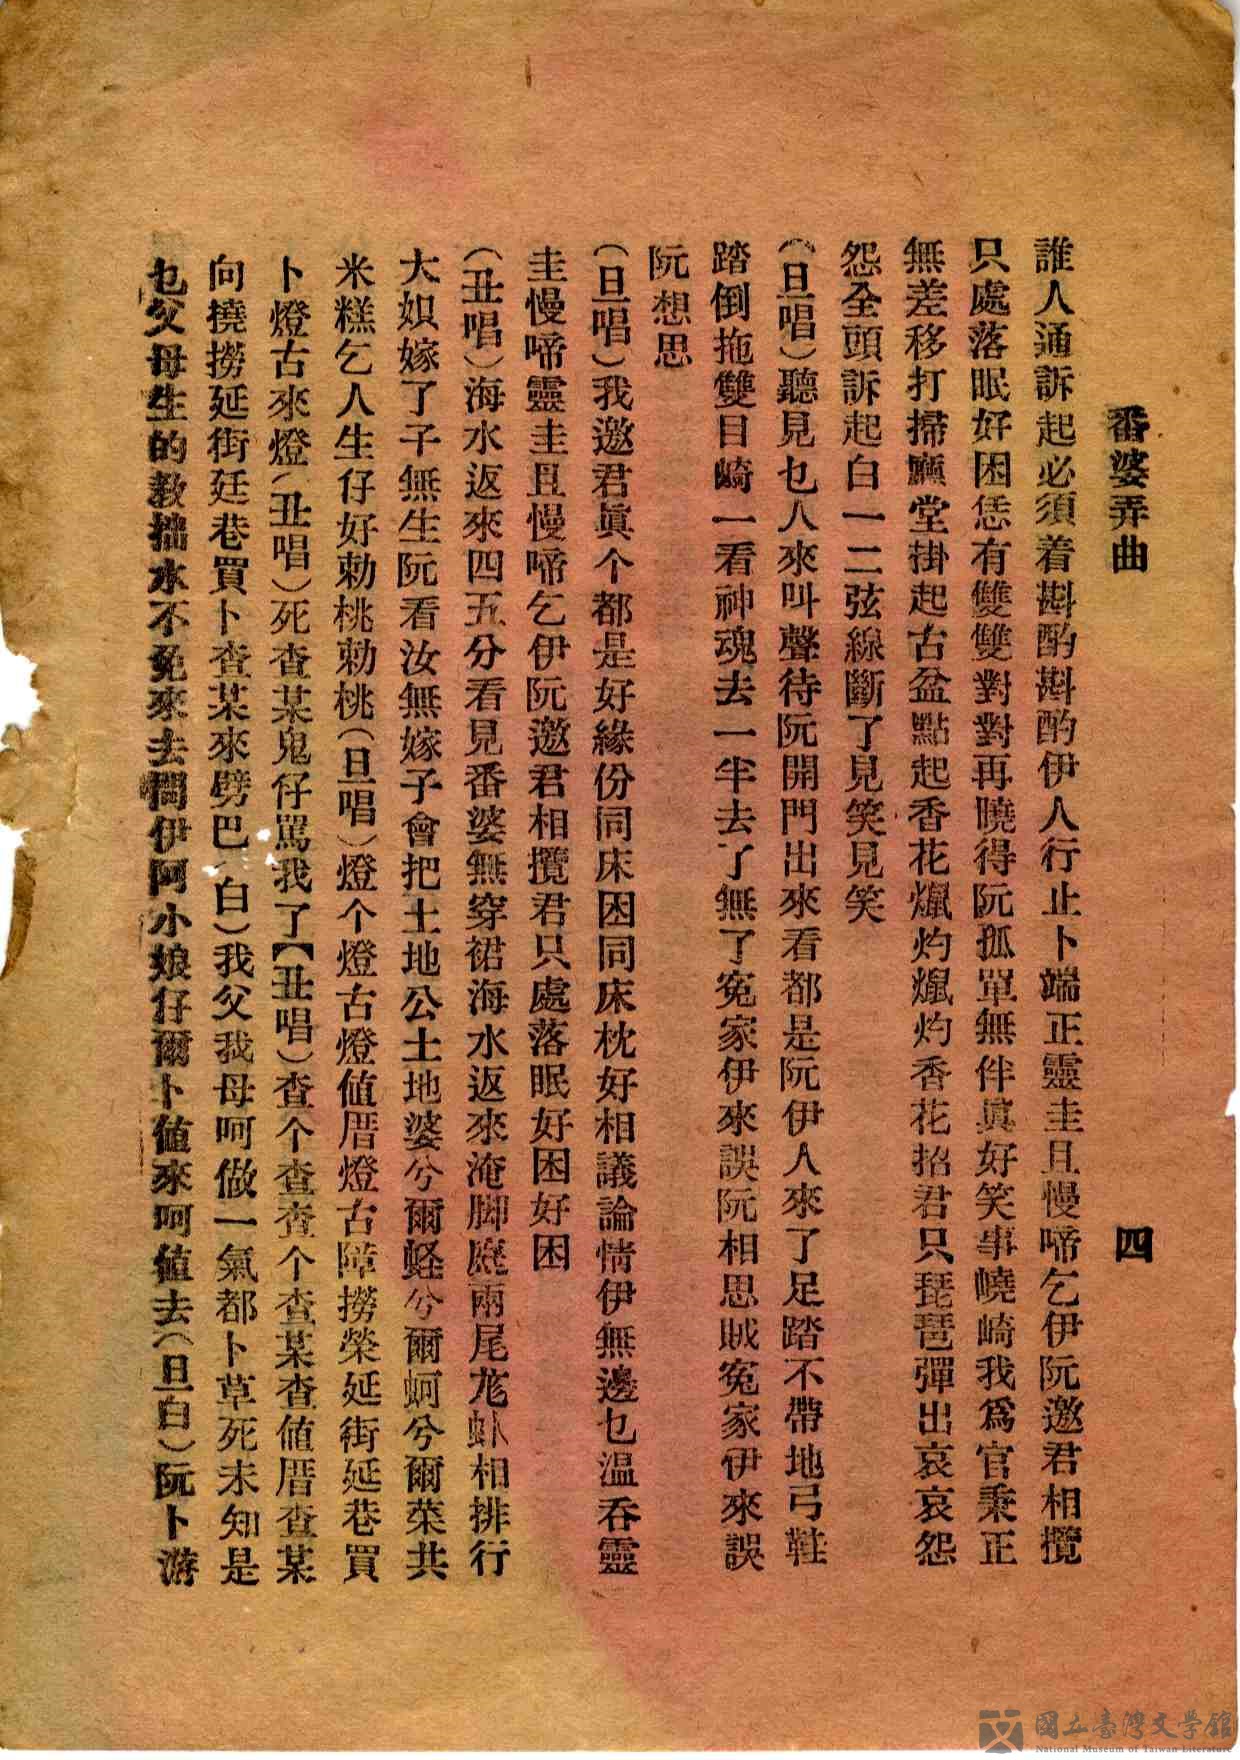 番婆弄曲 四
誰人通訴起必須着斟酌斟酌伊人行止卜端正靈圭且慢啼乞伊阮邀君相攬
只處落眠好困恁有雙雙對對再曉得阮孤單無伴眞好笑事嶢崎我爲官秉正
無差移打掃廳堂掛起古盆點起香花爉灼爉灼香花招君只琵琶彈出哀哀怨
怨全頭訴起白一二弦線斷了見笑見笑
(旦唱)聽見乜人來叫聲待阮開門出來看都是阮伊人來了足踏不帶地弓鞋
踏倒拖雙目崎一看神魂去一半去了無了冤家伊來誤阮相思賊冤家伊來誤
阮想思
(旦唱)我邀君眞个都是好緣份同床困同床枕好相議論情伊無邊乜溫吞靈
圭慢啼靈圭且慢啼乞伊阮邀君相攬君只處落眠好困好困
(丑唱)海水返來四五分看見番婆無穿裙海水返來淹脚庭兩尾尨虲相排行
大娘嫁了子無生阮看汝無嫁子會把土地公土地婆兮爾蛏兮爾蚵兮爾菜共
米糕乞人生仔好勅桃勅桃(旦唱)燈个燈古燈値厝燈古障撈榮延街延巷買
卜燈古來燈(丑唱)死查某鬼仔駡我了【丑唱)查个查查个查某查値厝查某
向撓撈延街廷巷買卜查某來劈巴(白)我父我母呵做一氣都卜草死未知是
乜父母生的教拙水不免來去問伊阿小娘仔爾卜値來呵値去(旦白)阮卜游
國立臺灣文學館
National Museum of Taiwan Literature